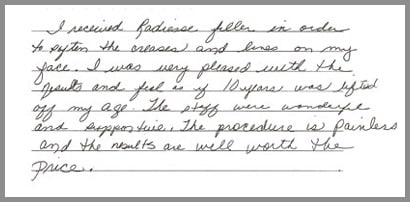 I received Radiesse filler in order
to soften the creases and lines on my
face. I was very pleased with the
results and feel as if 10 years was lifted
off my age. The staff were wonderful
and supportive. The procedure is painless
and the results are well worth the
price.